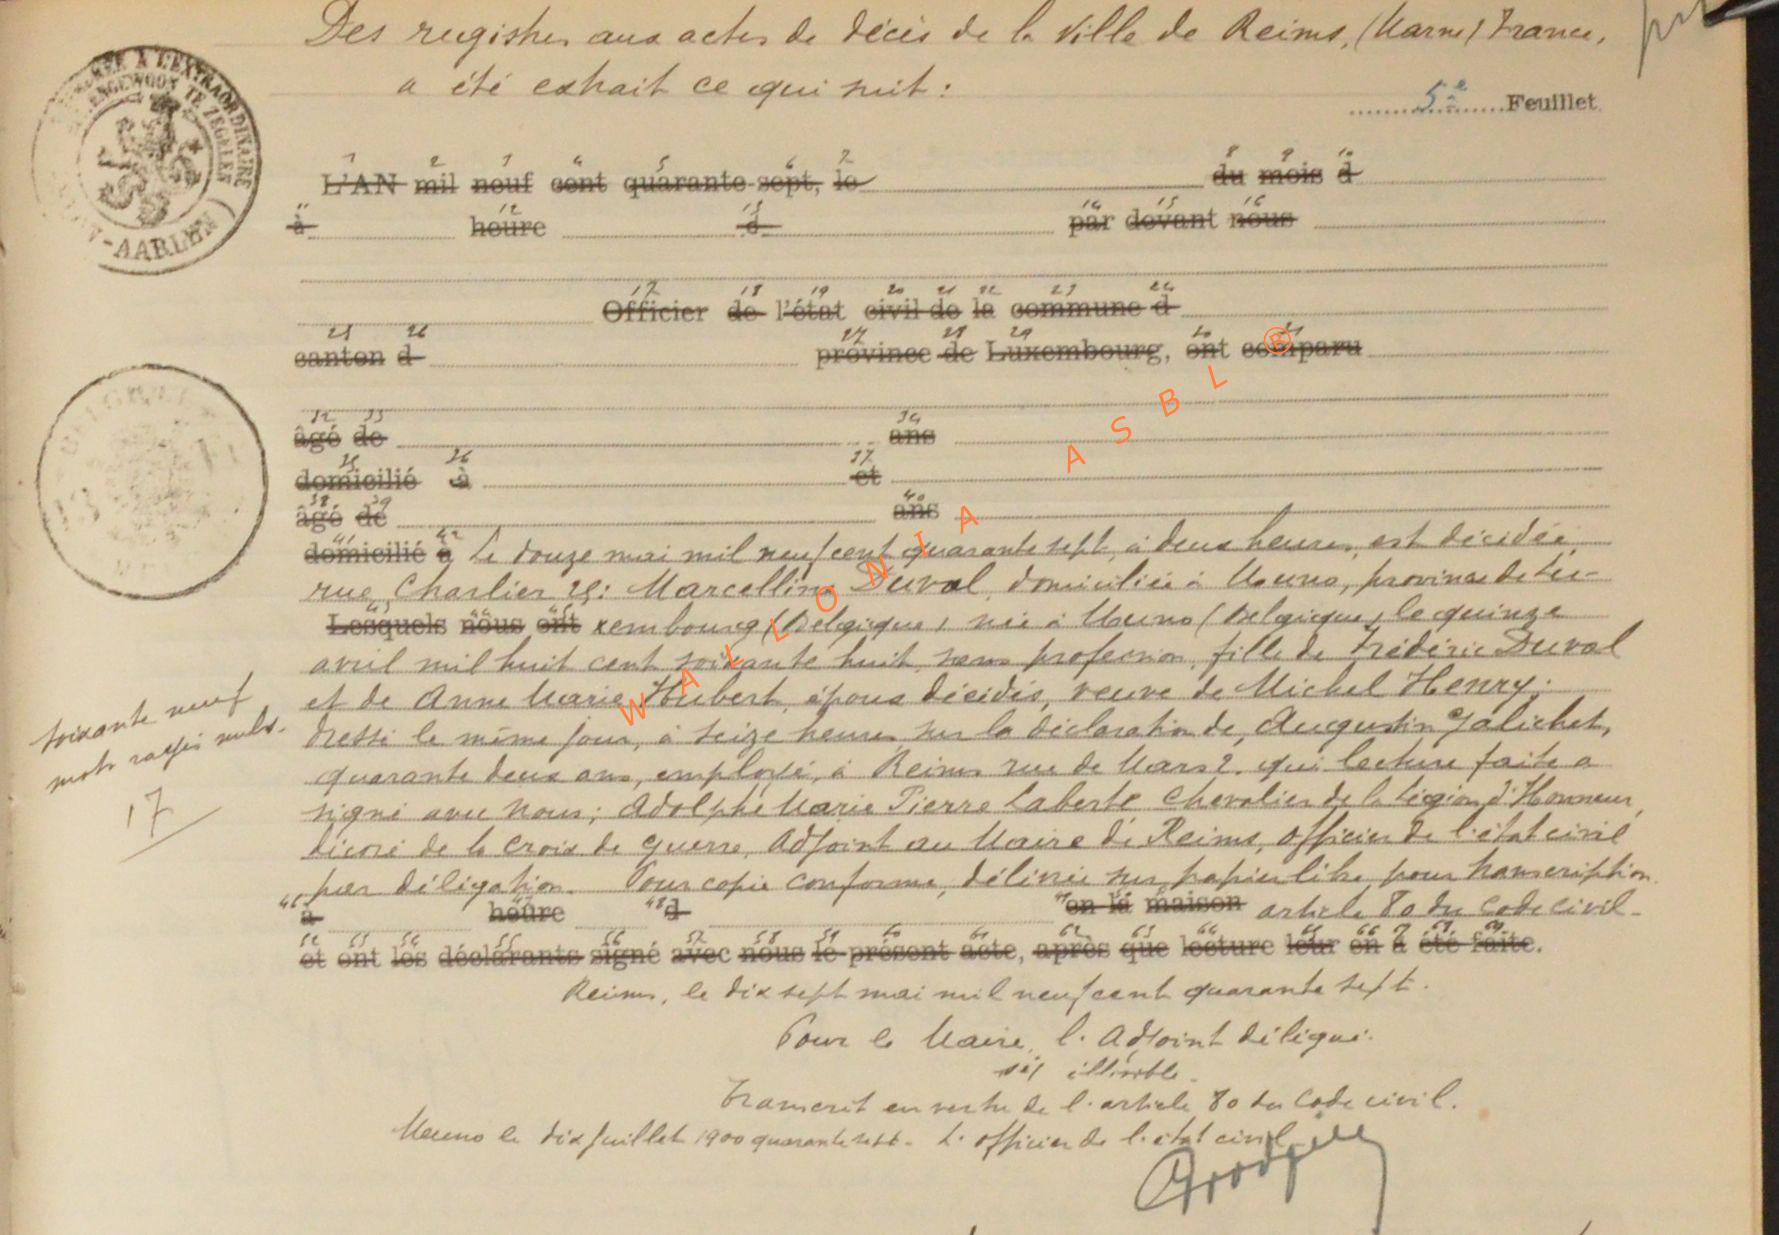 Des registres aux actes de décès de la Ville de Reims, (Marne) France,
a été extrait ce qui suit :
5e Feuillet
L'AN mil neuf cent quarante-sept, le du mois d
à heure d par devant nous
Officier de l'état civil de la commune d
canton d province de Luxembourg, ont comparu
âgé de ans
domicilié à et
âgé de ans
domicilié à Le douze mai mil neuf cent quarante sept, à deux heures, est décédée,
rue Charlier 25: Marcelline Duval, domiciliée à Muno, province de Lu-
Lesquels nous ont xembourg (Belgique) née à Muno (Belgique) le quinze
avril mil huit cent soixante huit, sans profession, fille de Frédéric Duval
et de Anne Marie Hubert, époux décédés, veuve de Michel Henry;
dressé le même jour, à seize heures, sur la déclaration de, Augustin Jalichet,
quarante deux ans, employé, à Reims rue de Mars 2. qui lecture faite a
signé avec Nous; Adolphe Marie Pierre Laberte Chevalier de la Légion d'Honneur,
décoré de la Croix de Guerre, Adjoint au Maire de Reims, officier de l'état civil
par délégation. Pour copie conforme, délivrée sur papier libre pour transcription.
à heure d en la maison article 80 du Code civil.
et ont les déclarants signé avec nous le présent acte, après que lecture leur en a été faite.
Reims, le dix sept mai mil neuf cent quarante sept.
Pour le Maire, l'Adjoint délégué.
sé/ illisible.
Transcrit en vertu de l'article 80 du Code civil.
Muno le dix juillet 1900 quarante sept. L'officier de l'état civil
soixante neuf
mots rayés nuls.
17
-AARLEN
WALLONIA ASBL ®